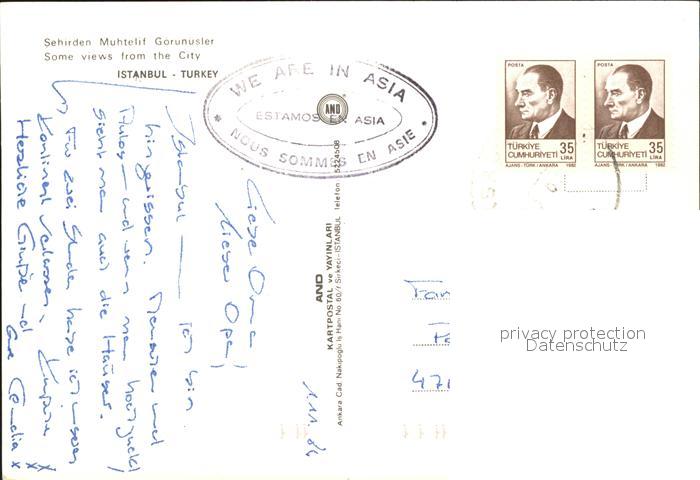 Sehirden Muhtelif Görünüsler
Some views from the City
ISTANBUL - TURKEY
WE ARE IN ASIA
AND
ESTAMOS EN ASIA
NOUS SOMMES EN ASIE
POSTA
TÜRKİYE
CUMHURİYETİ
35
LİRA
AJANS-TÜRK/ANKARA 1982
POSTA
TÜRKİYE
CUMHURİYETİ
35
LİRA
AJANS-TÜRK/ANKARA 1982
AND
KARTPOSTAL ve YAYINLARI
Ankara Cad. Nakipoglu Is Hani No:60/7 Sirkeci-ISTANBUL Telefon
Liebe Oma!
Lieber Opa!
Istanbul — ich bin
hingerissen.
und wenn man
sieht man auch die Häuser.
Für zwei Stunden habe ich unseren
Kontinent verlassen.
Herzliche Grüße
471
privacy protection
Datenschutz